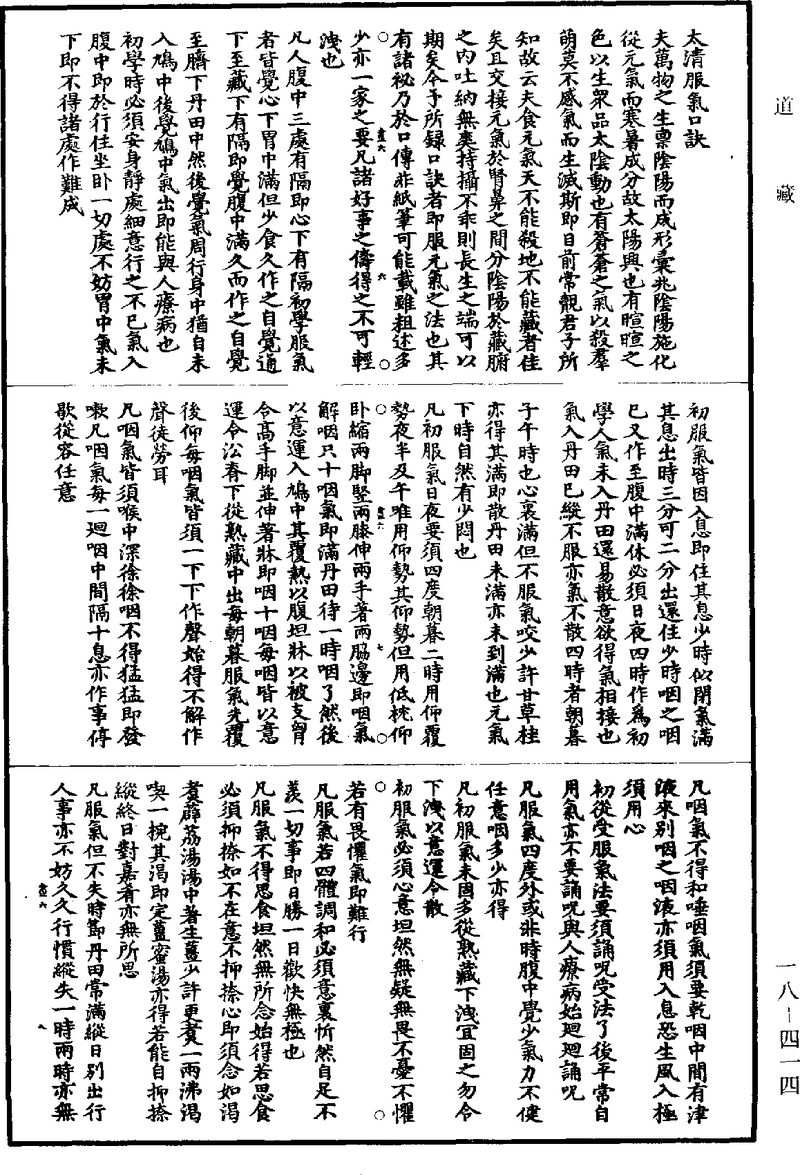 道藏
太清服氣口訣
夫萬物之生稟陰陽而成形彙兆陰陽施化
從元氣而寒暑成分故太陽興也有暄暄之
色以生衆品太陰動也有蒼蒼之氣以殺羣
萌莫不感氣而生滅斯即目前常覩君子所
知故云夫食元氣天不能殺地不能藏者佳
矣且交接元氣於腎鼻之間分陰陽於藏腑
之內吐納無爽持攝不乖則長生之端可以
期矣今予所錄口訣者即服元氣之法也其
有諸祕乃於口傳非紙筆可能載雖粗述多
少亦一家之要凡諸好事之儔得之不可輕
洩也
凡人腹中三處有隔即心下有隔初學服氣
者皆覺心下胃中滿但少食久作之自覺通
下至藏下有隔即覺腹中滿久而作之自覺
至臍下丹田中然後覺氣周行身中猶自未
入鳩中後覺鳩中氣出即能與人療病也
初學時必須安身靜處細意行之不已氣入
腹中即於行住坐卧一切處不妨胃中氣未
下即不得諸處作難成
初服氣皆因入息即住其息少時似閉氣滿
其息出時三分可二分出還住少時咽之咽
已又作至腹中滿休必須日夜四時作爲初
學人氣未入丹田還易散意欲得氣相接也
氣入丹田已縱不服亦氣不散四時者朝暮
子午時也心裏滿但不服氣咬少許甘草桂
亦得其滿即散丹田未滿亦未到滿也元氣
下時自然有少悶也
凡初服氣日夜要須四度朝暮二時用仰覆
勢夜半及午唯用仰勢其仰勢但用低枕仰
卧縮兩脚竪兩膝伸兩手著兩脇邊即咽氣
解咽只十咽氣即滿丹田待一時咽了然後
以意運入鳩中其覆熱以腹坦牀以被支胷
令高手脚並伸著牀即咽十咽每咽皆以意
運令㳂脊下從熟藏中出每朝暮服氣先覆
後仰每咽氣皆須一下下作聲始得不解作
聲徒勞耳
凡咽氣皆須喉中深徐徐咽不得猛猛即發
嗽凡咽氣每一迴咽中間隔十息亦作事停
歇從容任意
凡咽氣不得和唾咽氣須要乾咽中間有津
液來别咽之咽液亦須用入息恐生風入極
須用心
初從受服氣法要須誦呪受法了後平常自
用氣亦不要誦呪與人療病始迴迴誦呪
凡服氣四度外或非時腹中覺少氣力不健
任意咽多少亦得
凡初服氣未固多從熟藏下洩宜固之勿令
下洩以意運令散
初服氣必須心意坦然無疑無畏不憂不懼
若有畏懼氣即難行
凡服氣若四體調和必須意裏忻然自足不
羨一切事即日勝一日歡快無極也
凡服氣不得思食坦然無所念始得若思食
必須抑捺如不在意不抑捺心即須念如渴
煑薜荔湯湯中著生薑少許更煑一兩沸渴
喫一椀其渴即定薑蜜湯亦得若能自抑捺
縱終日對嘉肴亦無所思
凡服氣但不失時節丹田常滿縱日别出行
人事亦不妨久久行慣縱失一時兩時亦無
一八－四一四